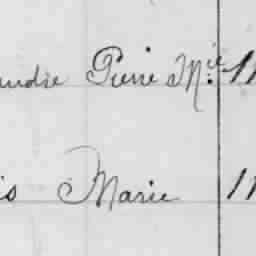 andre Pierre Mie
is Marie